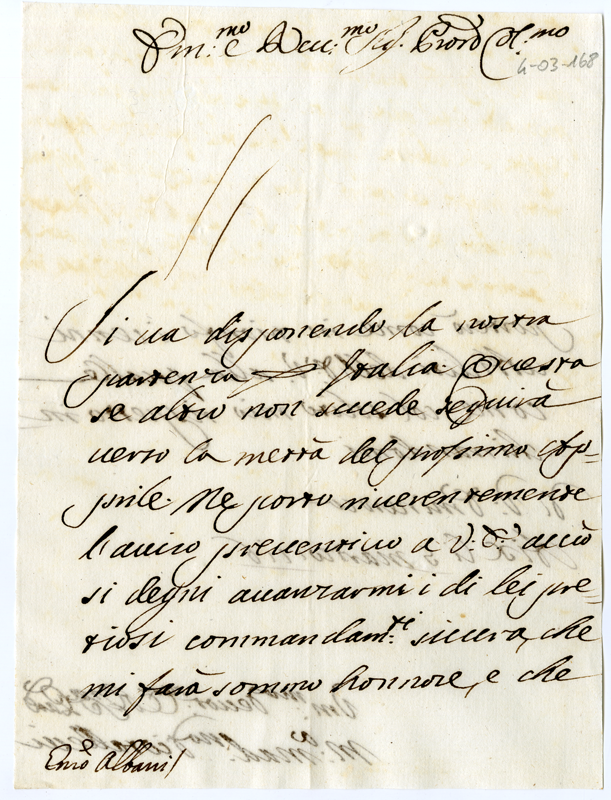 Em:mo e Rev:mo Sig. Pron Col:mo
4-03-168
Si va disponendo la nostra
partenza per Italia. Questa
se altro non succede seguirà
verso la mettà del prossimo Ap-
prile. Ne porto riverentemente
l'aviso preventivo a V: E: acciò
si degni avanzarmi i di lei pre-
tiosi commandam:ti sicura, che
mi farà sommo honnore, e che
Em:o Albani